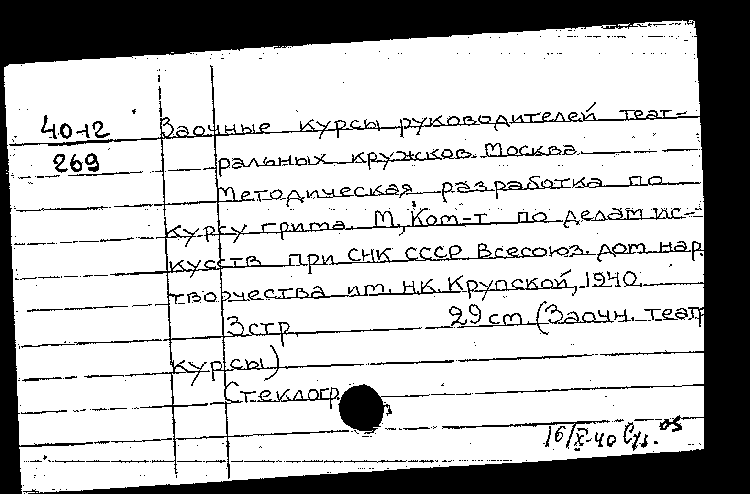 40-12
269
Заочные курсы руководителей теат-
ральных кружков. Москва.
Методическая разработка по
курсу грима. М, Ком-т по делам ис-
кусств при СНК СССР Всесоюз. дом нар.
творчества им. Н.К. Крупской, 1940.
3стр. 29 cm. (Заочн. театр
курсы)
Стеклогр.
16/X-40